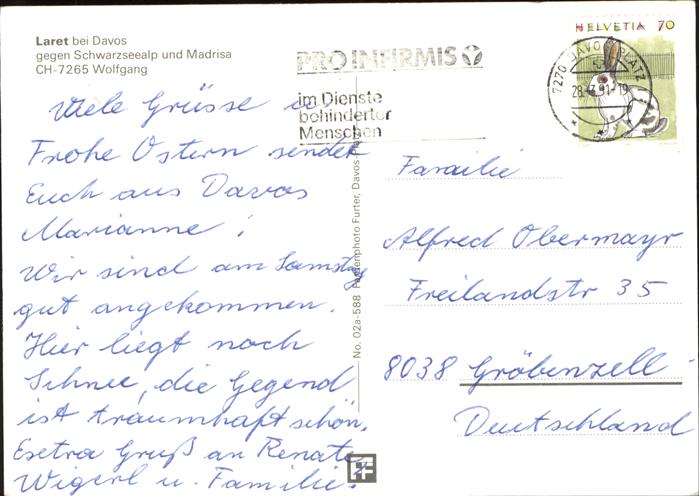 Laret bei Davos
gegen Schwarzseealp und Madrisa
CH-7265 Wolfgang
PRO INFIRMIS
im Dienste
behinderter
Menschen
HELVETIA 70
7270 DAVOS PLATZ
28.-3.91-19
Viele Grüsse u
Frohe Ostern sendet
Euch aus Davos
Marianne!
Wir sind am Samstag
gut angekommen.
Hier liegt noch
Schnee, die Gegend
ist traumhaft schön.
Esetra Gruß an Renate,
Wigerl u. Familie.
No. 02a-588 Photo Furter, Davos-
Familie
Alfred Obermayr
Freilandstr 35
8038 Gröbenzell
Deutschland